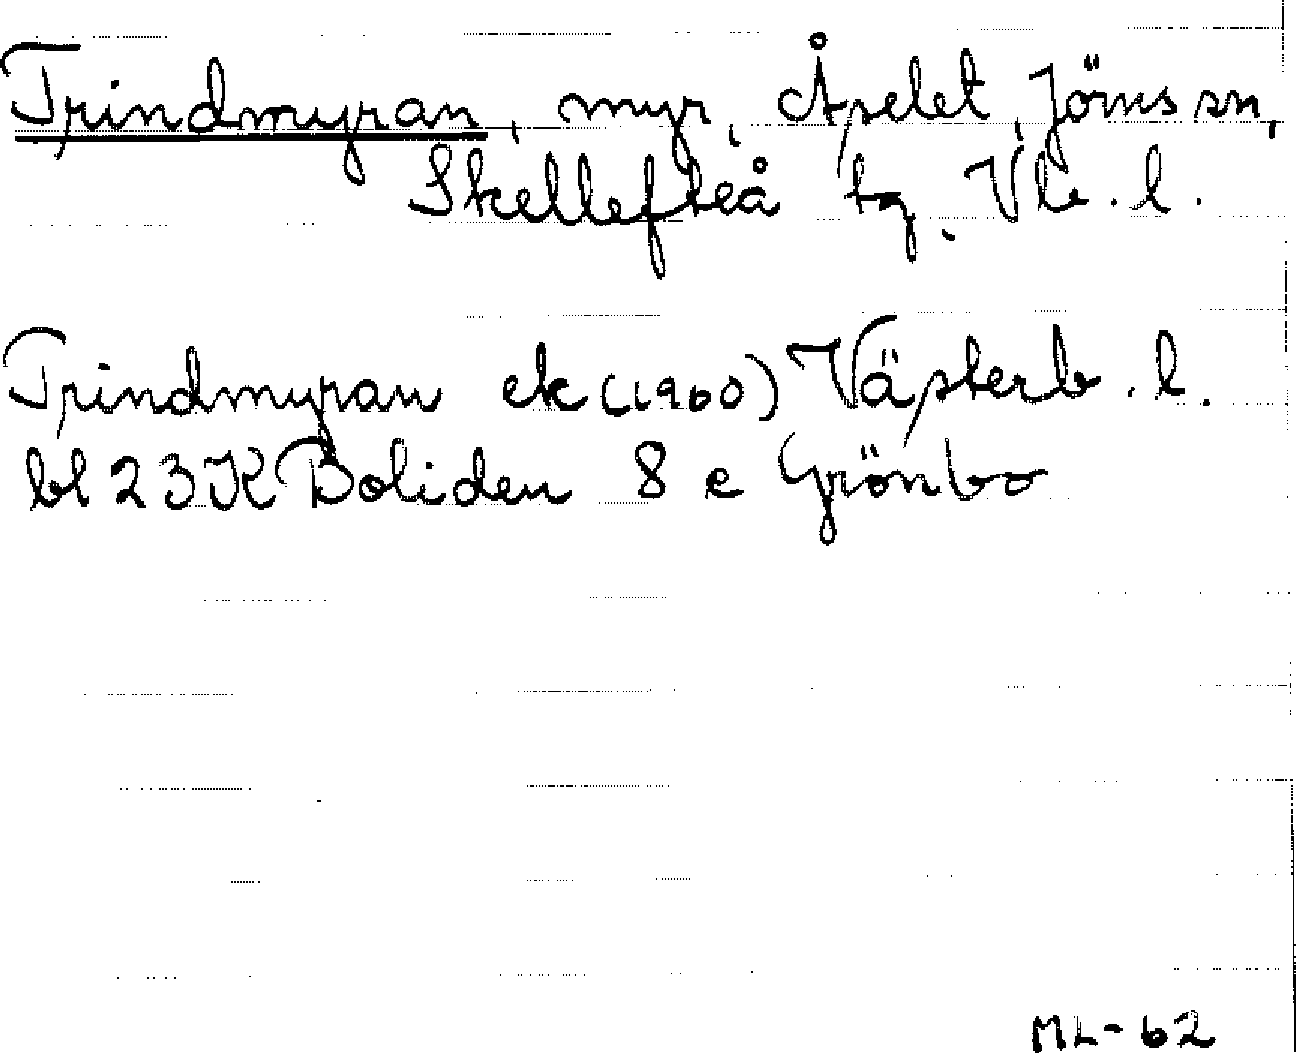 Trindmyran, myr, Åselet, Jörns sn,
Skellefteå tg, Vb. l.
Trindmyran ek (1960) Västerb. l.
bl 23K Boliden 8 e Grönbo
ML-62